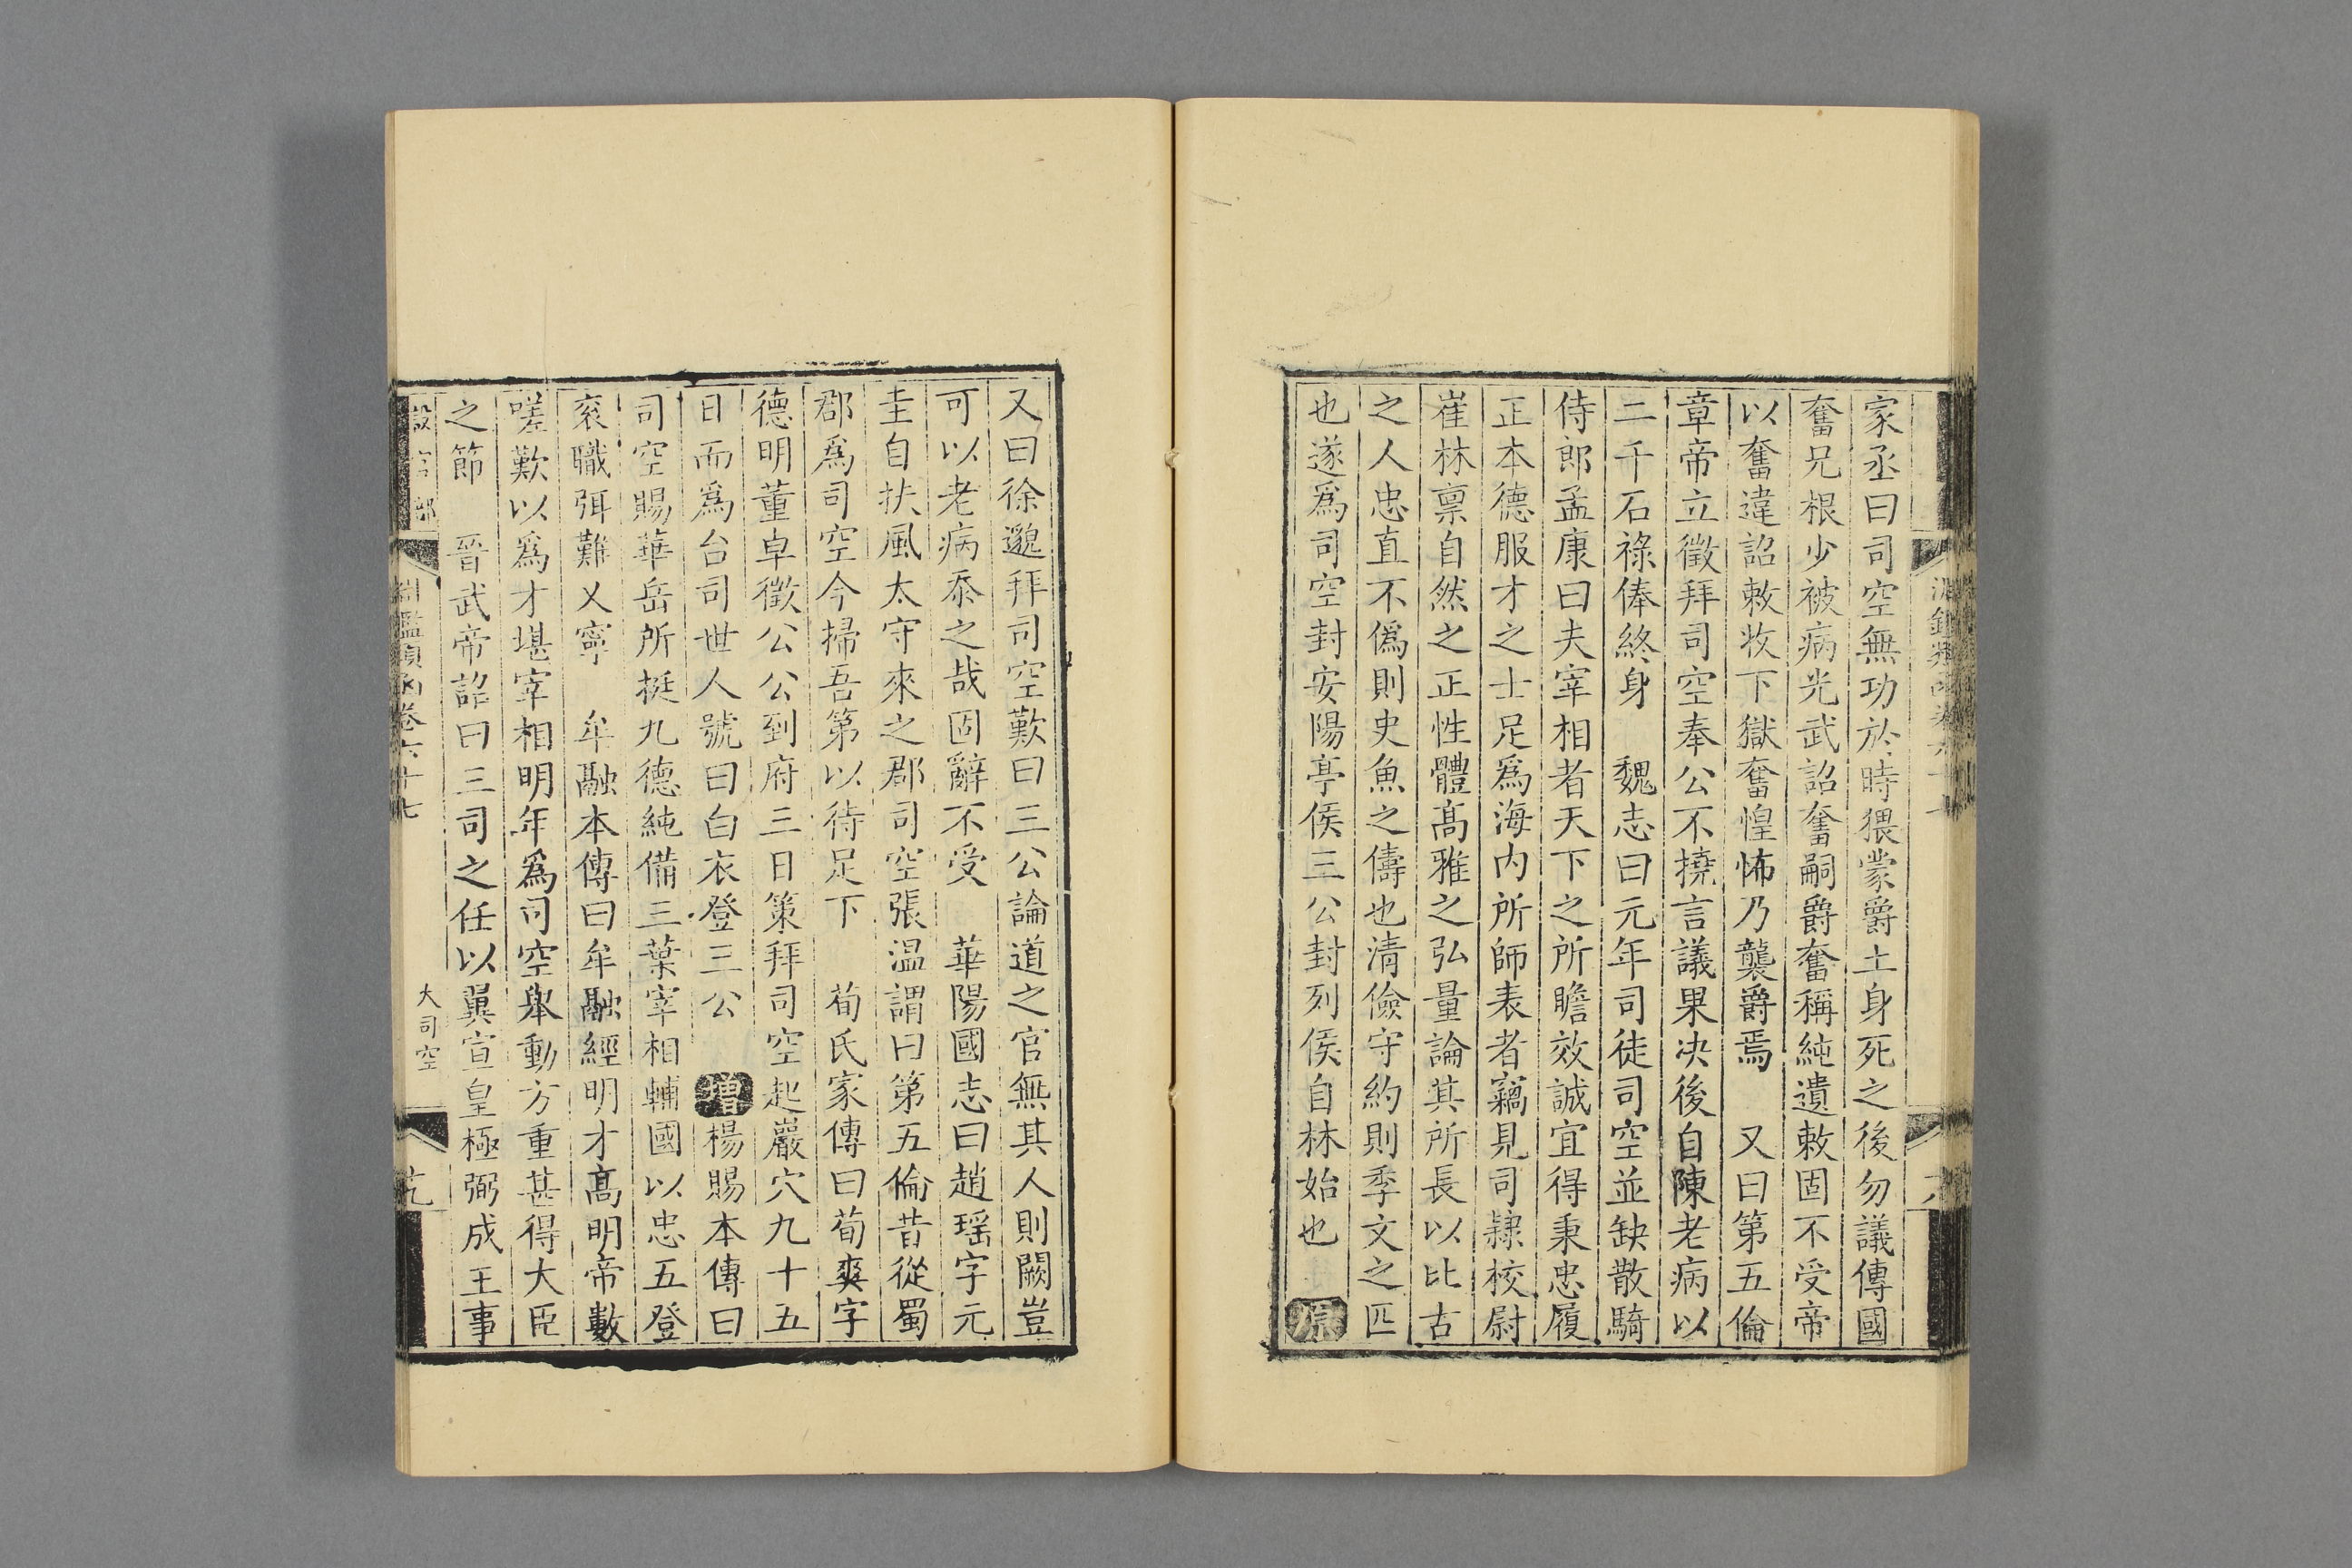 家丞曰司空無功於時猥蒙爵土身死之後勿議傳國
奮兄根少被病光武詔奮嗣爵奮稱純遺敕固不受帝
以奮違詔敕收下獄奮惶怖乃襲爵焉　又曰第五倫
章帝立徵拜司空奉公不撓言議果決後自陳老病以
二千石祿俸終身　魏志曰元年司徒司空並缺散騎
侍郎孟康曰夫宰相者天下之所瞻效誠宜得秉忠履
正本德服才之士足爲海内所師表者竊見司隸校尉
崔林禀自然之正性體高雅之弘量論其所長以比古
之人忠直不僞則史魚之儔也清儉守約則季文之匹
也遂爲司空封安陽亭侯三公封列侯自林始也　原
又曰徐邈拜司空歎曰三公論道之官無其人則闕豈
可以老病忝之哉固辭不受　華陽國志曰趙瑶字元
圭自扶風太守來之郡司空張温謂曰第五倫昔從蜀
郡爲司空今掃吾第以待足下　荀氏家傳曰荀爽字
德明董卓徵公公到府三日策拜司空起巖穴九十五
日而爲台司世人號曰白衣登三公　增楊賜本傳曰
司空賜華岳所挺九德純備三葉宰相輔國以忠五登
衮職弭難乂寧　牟融本傳曰牟融經明才高明帝數
嗟歎以爲才堪宰相明年爲司空舉動方重甚得大臣
之節　晉武帝詔曰三司之任以翼宣皇極弼成王事
設官部　淵鑑類函卷六十七　大司空